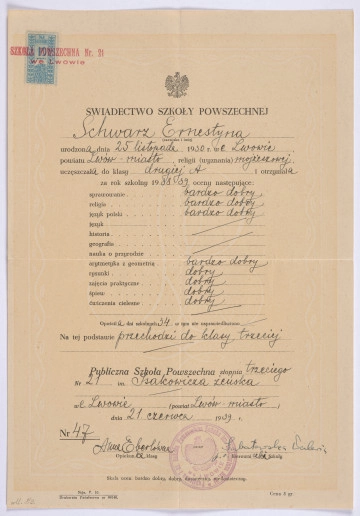 SZKOŁA POWSZECHNA Nr. 21
WE LWOWIE
ŚWIADECTWO SZKOŁY POWSZECHNEJ
Schwarz Ernestyna
urodzona dnia 25 listopada 1930 r. we Lwowie
powiatu Lwów-miasto, religii (wyznania) mojżeszowej
uczęszczała do klasy drugiej A i otrzymała
za rok szkolny 1938/39 oceny następujące:
sprawowanie bardzo dobry
religia bardzo dobry
język polski bardzo dobry
język
historia
geografia
nauka o przyrodzie
arytmetyka z geometrią bardzo dobry
rysunki dobry
zajęcia praktyczne dobry
śpiew dobry
ćwiczenia cielesne dobry
Opuściła dni szkolnych 34, w tym nie usprawiedliwiono
Na tej podstawie przechodzi do klasy trzeciej
Publiczna Szkoła Powszechna stopnia trzeciego
Nr 21 im. Isakowicza żeńska
we Lwowie (powiat Lwów-miasto)
dnia 21 czerwca 1939 r.
Nr 47
Anna Eberlówna
Opiekun klasy
Kierownik szkoły
Skala ocen: bardzo dobry, dobry, dostateczny, niedostateczny.
Cena 5 gr.